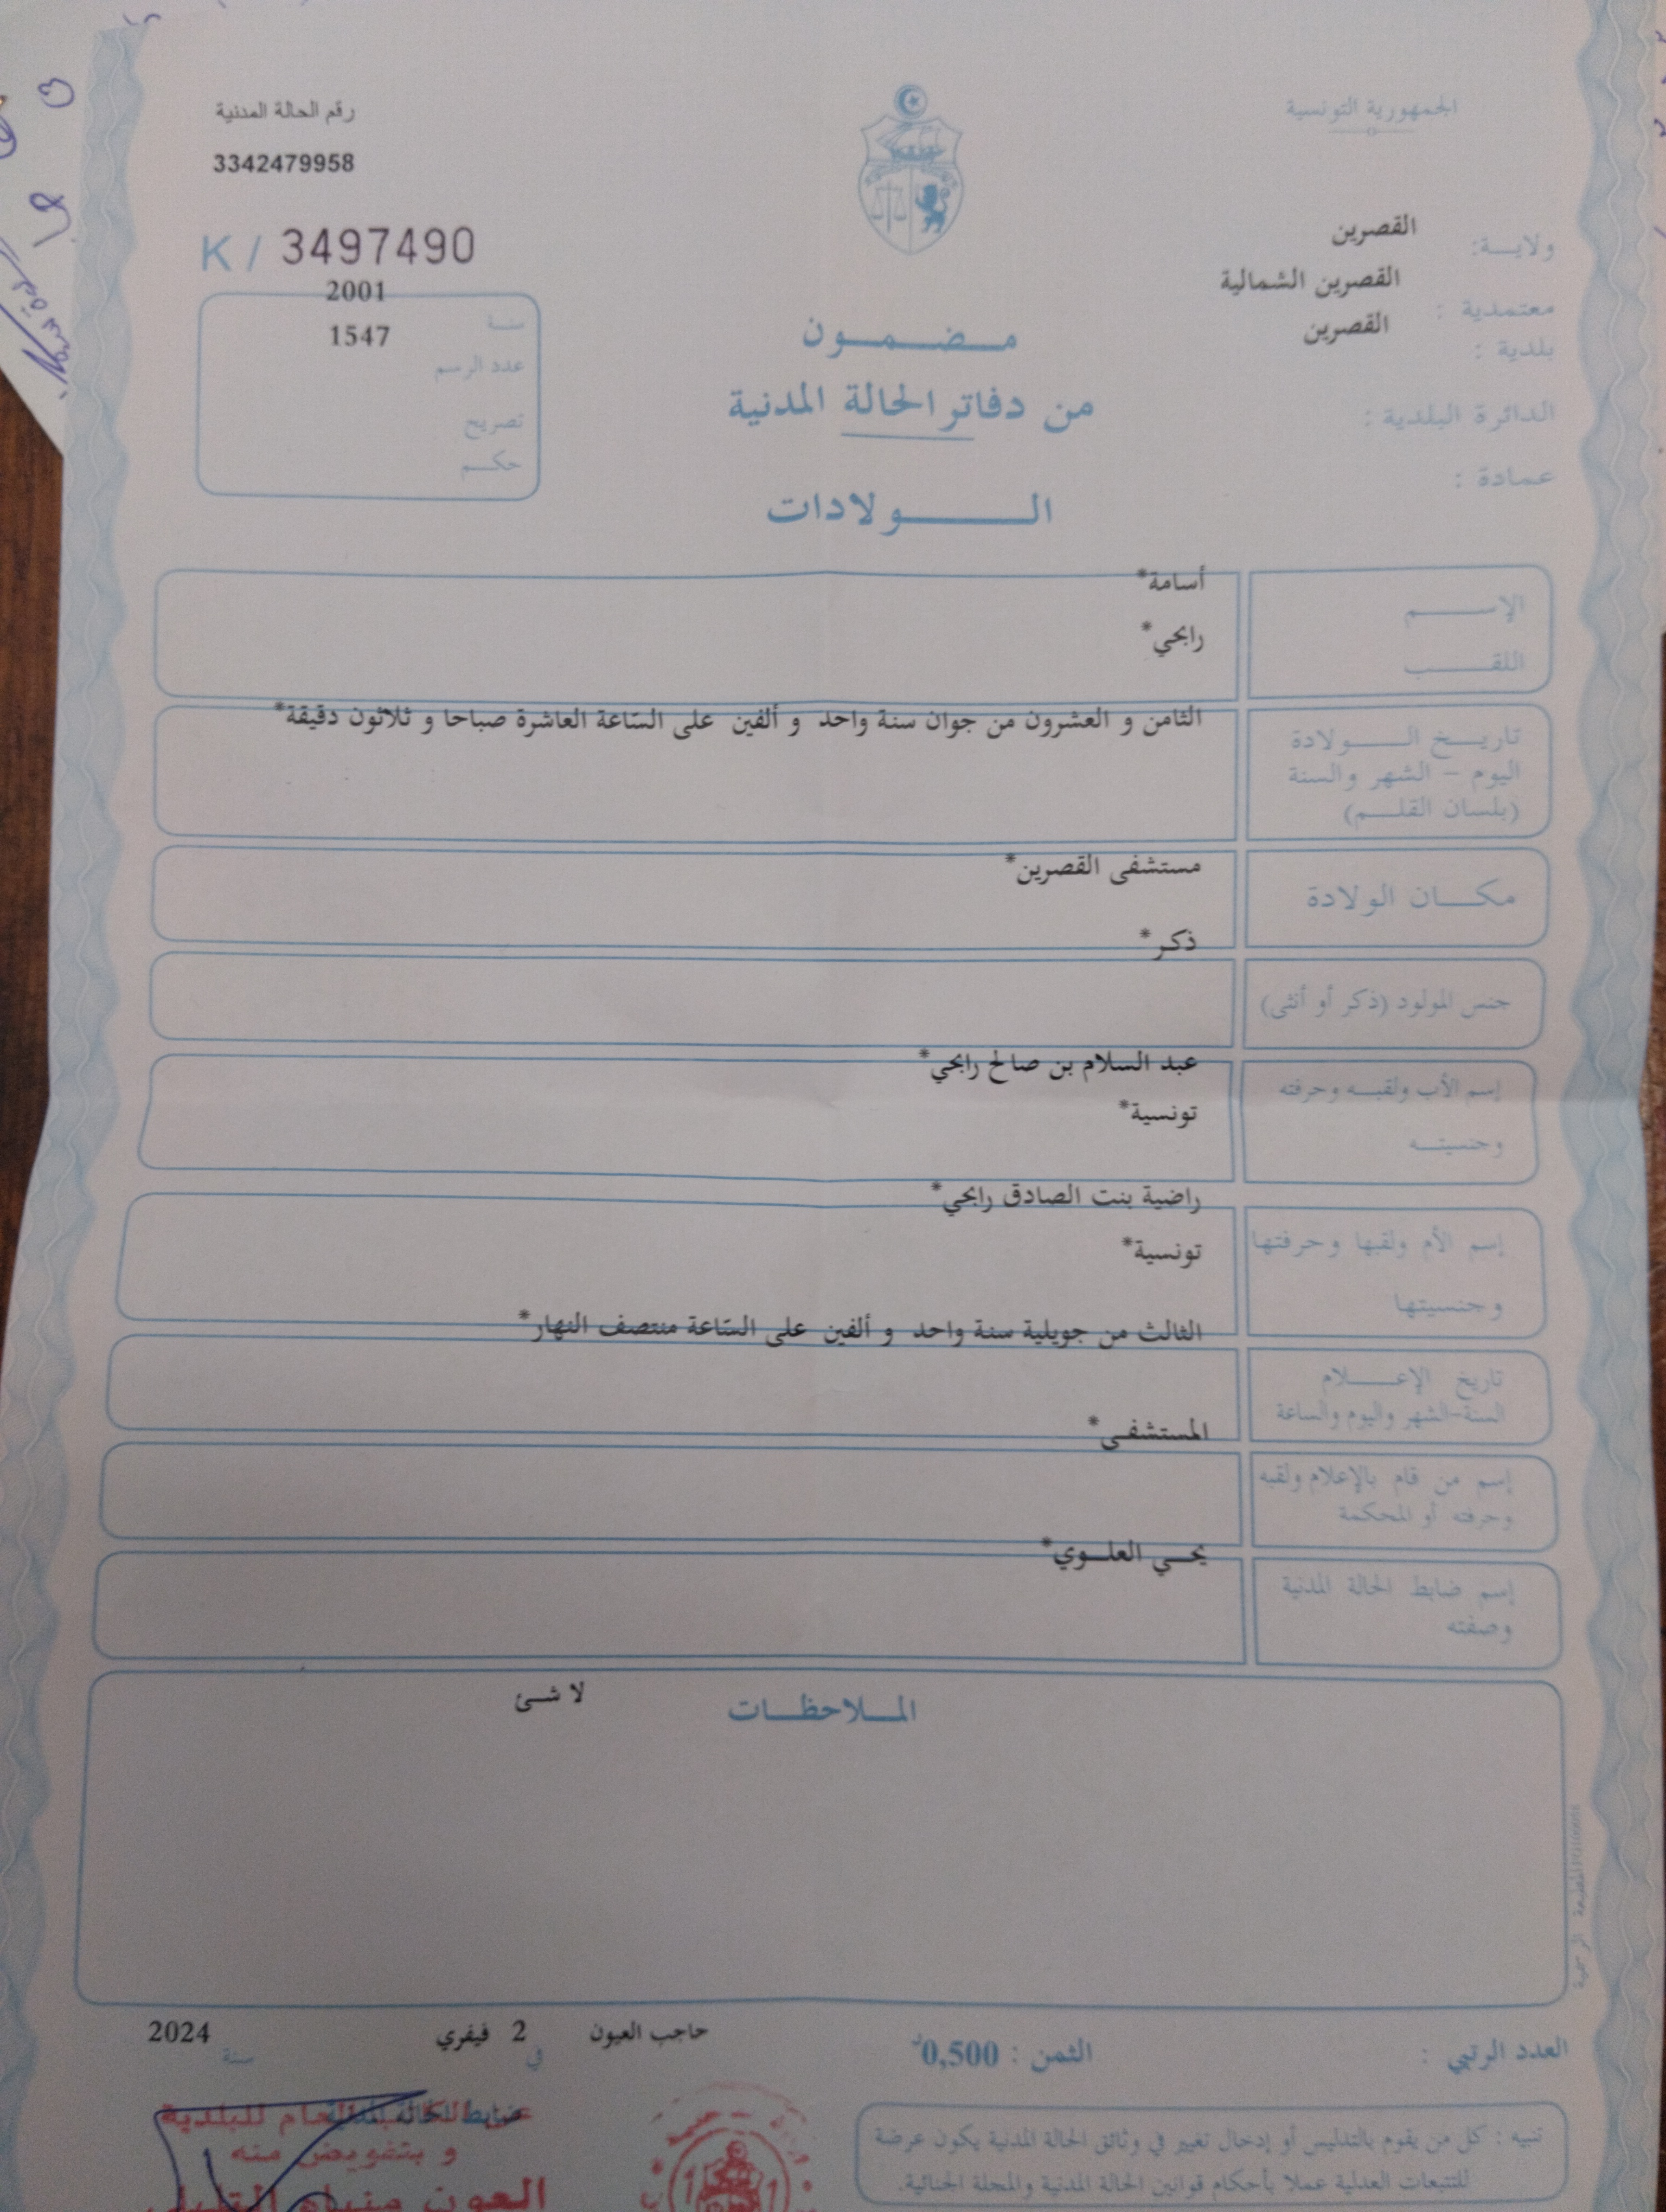 الجمهورية التونسية
رقم الحالة المدنية
3342479958
K / 3497490
ولايـــة: القصرين
معتمدية : القصرين الشمالية
بلدية : القصرين
الدائرة البلدية :
عمادة :
سنة 2001
عدد الرسم 1547
تصريح
حكـــم
مـــضـــمـــون
من دفاتر الحالة المدنية
الــــــولادات
الإســــــم أسامة*
اللقـــــب رابحي*
تاريـــخ الــــــولادة
اليوم - الشهر والسنة
(بلسان القلـــم)
الثامن و العشرون من جوان سنة واحد و ألفين على السّاعة العاشرة صباحا و ثلاثون دقيقة*
مكـــان الولادة مستشفى القصرين*
جنس المولود (ذكر أو أنثى) ذكر*
إسم الأب ولقبـــه وحرفته عبد السلام بن صالح رابحي*
وجنسيتـــه تونسية*
إسم الأم ولقبها وحرفتها راضية بنت الصادق رابحي*
وجنسيتها تونسية*
تاريخ الإعـــــلام الثالث من جويلية سنة واحد و ألفين على السّاعة منتصف النهار*
السنة-الشهر واليوم والساعة
إسم من قام بالإعلام ولقبه المستشفى*
وحرفته أو المحكمة
إسم ضابط الحالة المدنية يحـــي العلـــوي*
وصفته
المـــلاحظـــات
لا شـئ
العدد الرتبي :
الثمن : 0,500د
حاجب العيون في 2 فيفري سنة 2024
تنبيه : كل من يقوم بالتدليس أو إدخال تغيير في وثائق الحالة المدنية يكون عرضة
للتتبعات العدلية عملا بأحكام قوانين الحالة المدنية والمجلة الجنائية.
ضابط الحالة المدنية
العام للبلدية
و بتفويض منه
العون